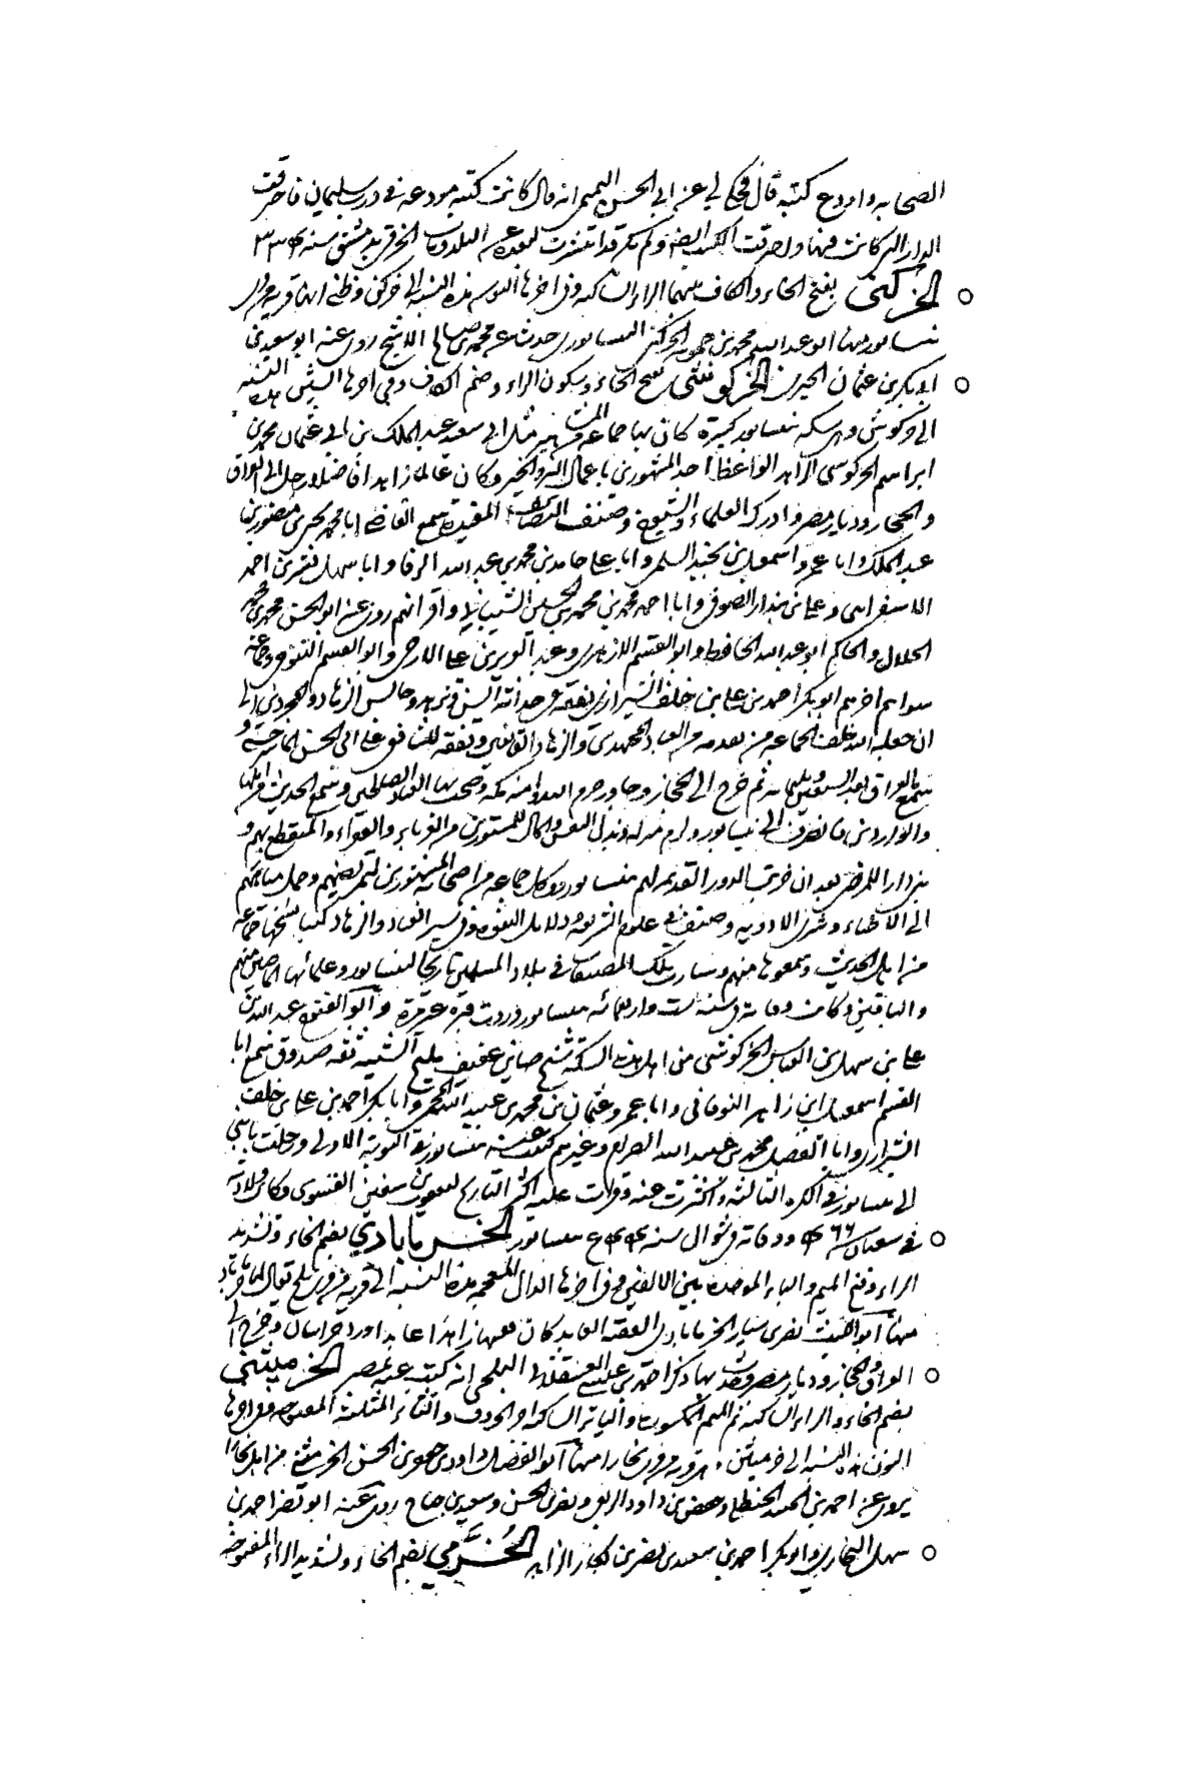 الصحابة واودع كتبه قال فحكى لي عن ابي الحسن التميمي انه قال كانت كتبه مودعة في درب سليمان فاحترقت
الدار التي كانت فيها واحترقت الكتب ايضا ولم تكن قد انتشرت لبعده عن البلد ومات الخرقي بدمشق سنة ٣٣٤
الخركني بفتح الخاء والكاف بينهما الراء الساكنة وفي اخرها النون هذه النسبة الى خركن وظني انها قرية من قرى
نيسابور منها ابو عبد الله محمد بن حمويه الخركني النيسابوري حدث عن محمد بن صالح الاشج روى عنه ابو سعيد بن
ابي بكر بن عثمان الحيري الخركوشي بفتح الخاء وسكون الراء وضم الكاف وفي اخرها الشين هذه النسبة
الى خركوش وهي سكة بنيسابور كبيرة كان بها جماعة من المشاهير مثل ابي سعيد عبد الملك بن ابي عثمان محمد بن
ابراهيم الخركوشي الزاهد الواعظ احد المشهورين باعمال البر والخير وكان عالما زاهدا فاضلا رحل الى العراق
والحجاز وديار مصر وادرك العلماء والشيوخ وصنف التصانيف المفيدة سمع القاضي ابا محمد يحيى بن منصور بن
عبد الملك وابا عمرو اسمعيل بن نجيد السلمي وابا علي حامد بن محمد بن عبد الله الرفا وابا سهل بشر بن احمد
الاسفرايني وعلي بن بندار الصوفي وابا احمد محمد بن محمد بن الحسين الشيباني واقرانهم روى عنه ابو الحسن محمد بن محمد
الخلال والحاكم ابو عبد الله الحافظ وابو القسم الازهري وعبد العزيز بن علي الازجي وابو القسم التنوخي وجماعة
سواهم اخرهم ابو بكر احمد بن علي بن خلف الشيرازي تفقه في حداثة السن وتزهد وجالس الزهاد والمجردين الى
ان جعله الله خلف الجماعة من تقدمه من العباد المجتهدين والزهاد القانعين وتفقه للشافعي على ابي الحسن الماسرجسي و
سمع بالعراق بعد السبعين وثلثمائة ثم خرج الى الحجاز وجاور حرم الله وامنه مكة وصحب بها العباد الصالحين وسمع الحديث من اهلها
والواردين فانصرف الى نيسابور ولزم منزله وبذل النفس والمال للمستورين من الغرباء والفقراء والمنقطع بهم و
بنى دارا للمرضى بعد ان خربت الدور القديمة لهم بنيسابور ووكل جماعة من اصحابه المستورين لتمريضهم وحمل مياههم
الى الاطباء وشرى الادوية وصنف في علوم الشريعة ودلائل النبوة وفي سير العباد والزهاد كتبا نسخها جماعة
من اهل الحديث وسمعوها منهم وسارت تلك المصنفات في بلاد المسلمين تاريخا لنيسابور وعلمائها الماضين منهم
والباقين وكانت وفاته في سنة ست واربعمائة بنيسابور وزرت قبره غير مرة وابو الفتوح عبد الله بن
علي بن سهل بن العباس الخركوشي من اهل هذه السكة شيخ صائن عفيف مليح الشيبة ثقة صدوق سمع ابا
القسم اسمعيل بن زاهر النوقاني وابا عمرو عثمان بن محمد بن عبيد الله المحمي وابا بكر احمد بن علي بن خلف
الشيرازي وابا الفضل محمد بن عبيد الله الصرام وغيرهم كتبت عنه بنيسابور في النوبة الاولى ورحلت بابني
الى نيسابور في الكرة الثالثة واكثرت عنه وقرات عليه اكثر التاريخ ليعقوب بن سفين الفسوي وكانت ولادته
في شعبان سنة ٤٦٦ ووفاته في شوال سنة ٥٤٤ بنيسابور الخرماباذي بضم الخاء وتشديد
الراء وفتح الميم والباء الموحدة بين الالفين وفي اخرها الذال المعجمة هذه النسبة الى قرية من قرى بلخ يقال لها خرماباد
منها ابو الليث نصر بن سيار الخرماباذي الفقيه العابد كان فقيها زاهدا عابدا ورد خراسان وخرج الى
العراق والحجاز وديار مصر وحدث بها ذكر احمد بن عيسى العسقلاني البلخي انه كتب عنه بمصر الخرميثني
بضم الخاء والراء الساكنة ثم الميم المكسورة والياء الساكنة اخر الحروف والثاء المثلثة المفتوحة وفي اخرها
النون هذه النسبة الى خرميثن وهي قرية من قرى بخارا منها ابو الفضل داود بن جعفر بن الحسن الخرميثني من اهل بخارا
يروي عن احمد بن الجنيد الحنظلي وحفص بن داود الربعي ونصر بن الحسن وسعيد بن جناح روى عنه ابو نصر احمد بن
سهل البخاري وابو بكر احمد بن سعد بن نصر بن بكار الزاهد الخرمي بضم الخاء وتشديد الراء المفتوحة